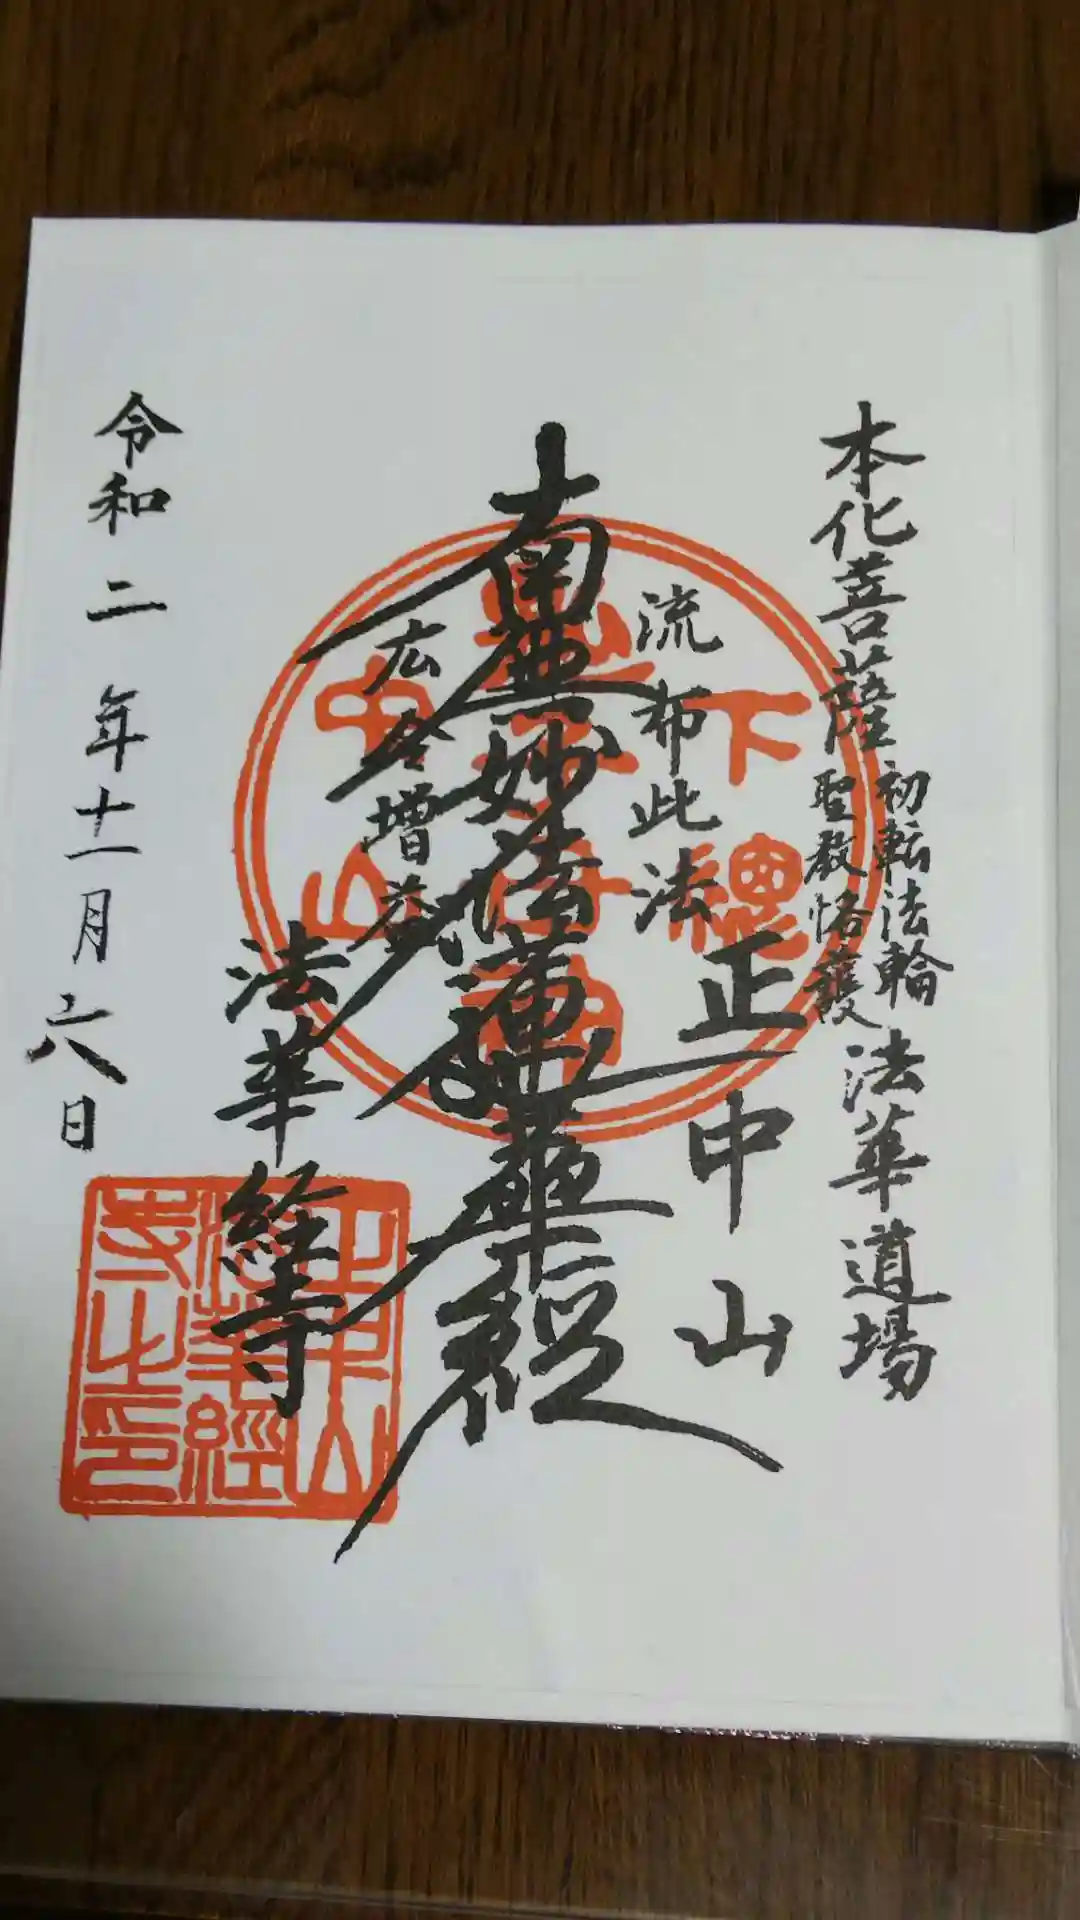 本化菩薩
初転法輪
聖教恪護
法華道場
正中山
流布此法
南無妙法蓮華経
広令増益
法華経寺
令和二年十一月六日
下總
中山
正中山
法華經
寺之印